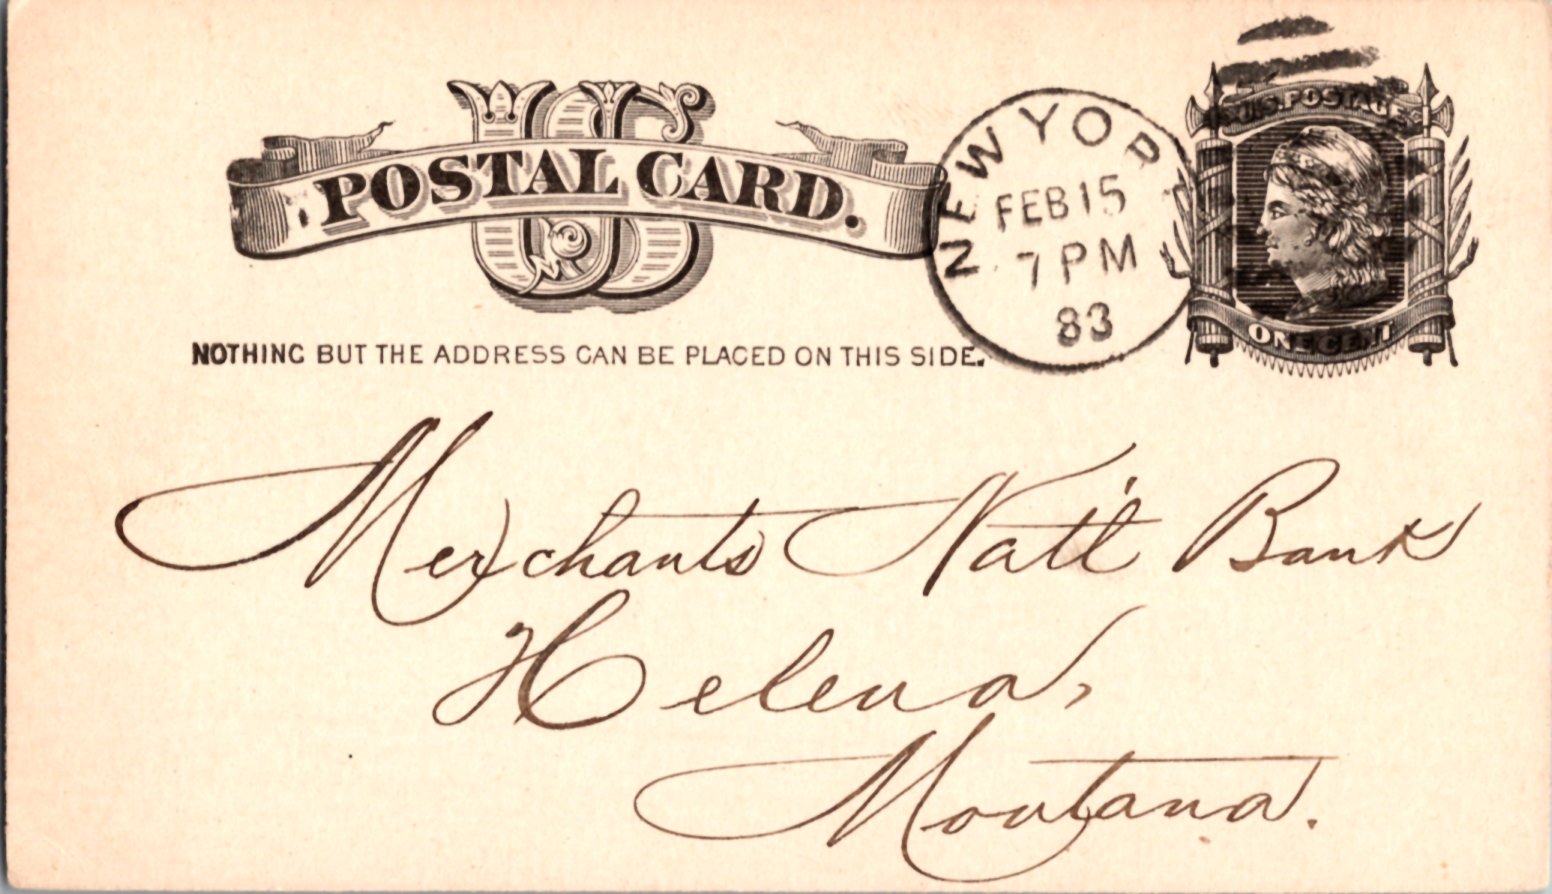 US
POSTAL CARD.
NEW YORK
FEB 15
7 PM
83
U.S. POSTAGE
ONE CENT
NOTHING BUT THE ADDRESS CAN BE PLACED ON THIS SIDE.
Merchants Nat'l Bank
Helena,
Montana.